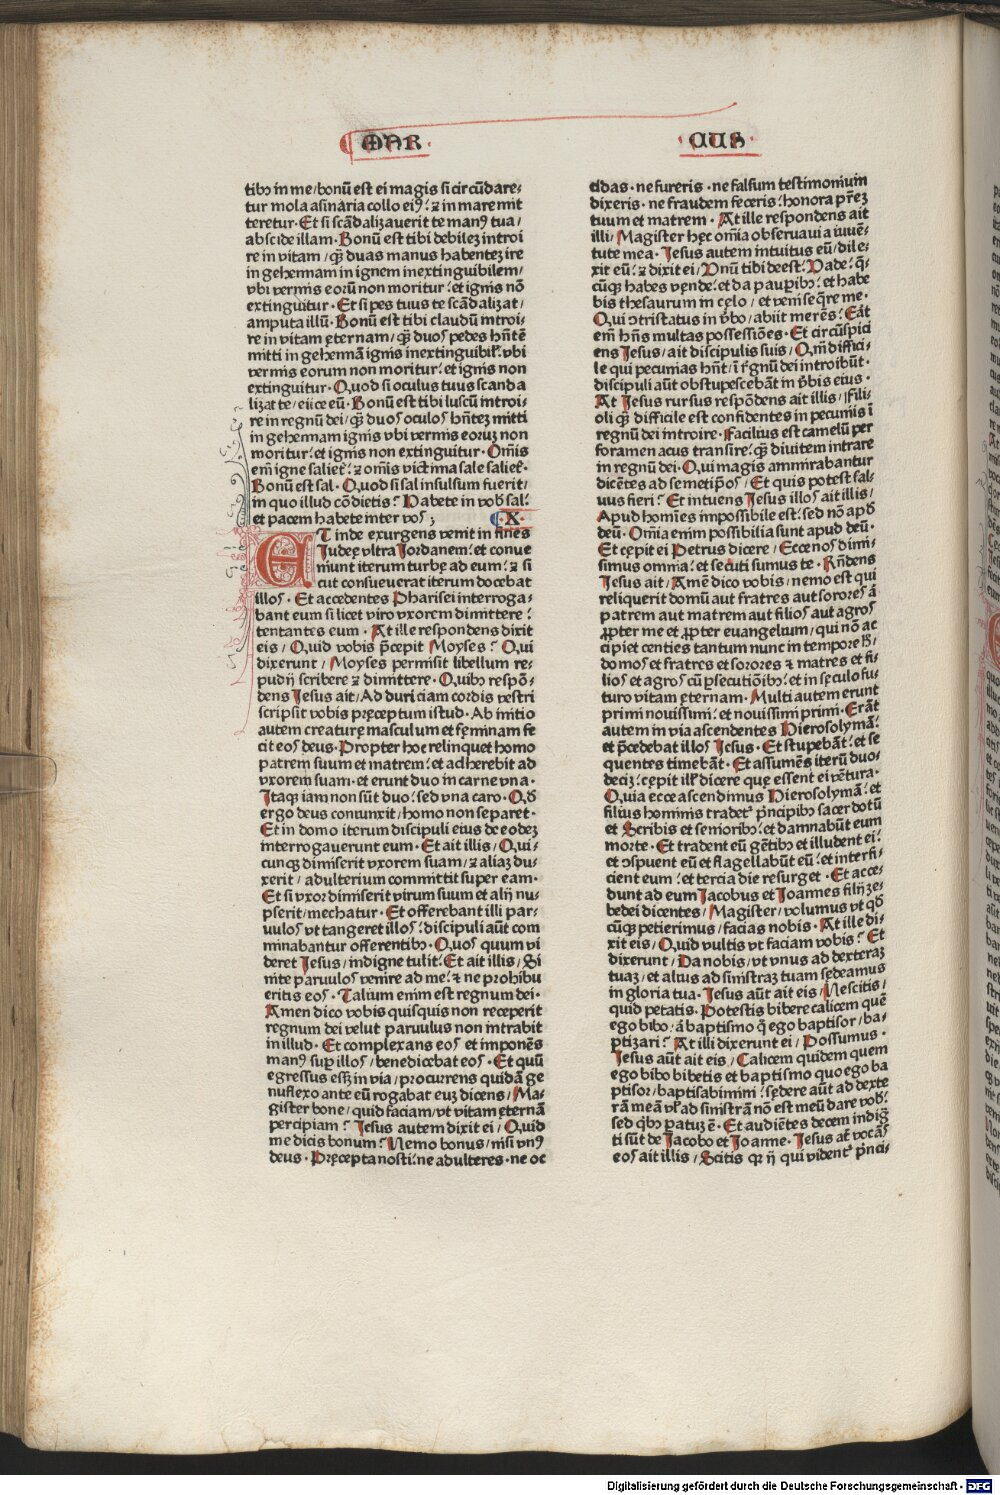 MAR CUS
tibꝫ in me / bonū est ei magis si circūdare⸗
tur mola asinaria collo eiꝰ: ⁊ in mare mit
teretur · Et si scādalizauerit te manꝰ tua /
abscide illam · Bonū est tibi debilez introi
re in vitam / qᷓꝫ duas manus habentez ire
in gehennam in ignem inextinguibilem /
vbi vermis eorū non moritur: et ignis nō
extinguitur · Et si pes tuus te scādalizat /
amputa illū · Bonū est tibi claudū introi⸗
re in vitam ęternam / qᷓꝫ duos pedes hn̄tē
mitti in gehennā ignis inextinguibil': vbi
vermis eorum non moritur: et ignis non
extinguitur · Quod si oculus tuus scanda
lizat te / eiice eū · Bonū est tibi luscū introi⸗
re in regnū dei / qᷓꝫ duos oculos hn̄tez mitti
in gehennam ignis vbi vermis eoruꝫ non
moritur: et ignis non extinguitur · Om̄is
em̄ igne salietᷣ: ⁊ om̄is victima sale salietᷣ ·
Bonū est sal · Quod si sal insulsum fuerit /
in quo illud cōdietis? Habete in vob̄ sal:
et pacem habete inter vos ; X ·
ET inde exurgens venit in fines
Iudeę vltra Jordanem: et conue
niunt iterum turbę ad eum: ⁊ si
cut consueuerat iterum docebat
illos · Et accedentes Pharisei interroga⸗
bant eum si licet viro vxorem dimittere:
tentantes eum · At ille respondens dixit
eis / Quid vobis p̄cepit Moyses? Qui
dixerunt / Moyses permisit libellum re⸗
pudij scribere ⁊ dimittere · Quibꝫ respō⸗
dens Jesus ait / Ad duriciam cordis vestri
scripsit vobis pręceptum istud · Ab initio
autem creaturę masculum et fęminam fe
cit eos deus · Propter hoc relinquet homo
patrem suum et matrem: et adherebit ad
vxorem suam · et erunt duo in carne vna ·
Itaqꝫ iam non sūt duo: sed vna caro · Qd̄
ergo deus coniunxit / homo non separet ·
Et in domo iterum discipuli eius de eodeꝫ
interrogauerunt eum · Et ait illis / Qui⸗
cunqꝫ dimiserit vxorem suam / ⁊ aliaꝫ du⸗
xerit / adulterium committit super eam ·
Et si vxor dimiserit virum suum et alij nu⸗
pserit / mechatur · Et offerebant illi par⸗
uulos vt tangeret illos: discipuli aūt com
minabantur offerentibꝫ · Quos quum vi
deret Jesus / indigne tulit: Et ait illis / Si
nite paruulos venire ad me: ⁊ ne prohibu
eritis eos · Talium enim est regnum dei ·
Amen dico vobis quisquis non receperit
regnum dei velut paruulus non intrabit
in illud · Et complexans eos et imponēs
manꝰ suꝑ illos / benedicebat eos · Et quū
egressus esset in via / procurrens quidā ge
nuflexo ante eū rogabat euꝫ dicens / Ma⸗
gister bone / quid faciam / vt vitam ęternā
percipiam? Jesus autem dixit ei / Quid
me dicis bonum? Nemo bonus / nisi vnꝰ
deus · Pręcepta nosti: ne adulteres · ne oc
cidas · ne fureris · ne falsum testimonium
dixeris · ne fraudem feceris: honora pr̄eꝫ
tuum et matrem · At ille respondens ait
illi / Magister hęc om̄ia obseruaui a iuuē⸗
tute mea · Jesus autem intuitus eū / dile⸗
xit eū: ⁊ dixit ei / Vnū tibi deest: Vade: q̄⸗
cūqꝫ habes vęnde: et da pauꝑibꝫ: et habe
bis thesaurum in cęlo / et veni seq̄re me ·
Qui ↄtristatus in v̄bo / abiit merēs: Eāt
em̄ hn̄s multas possessiões · Et circūspici
ens Jesus / ait discipulis suis / Qm̄ diffici⸗
le qui pecunias hn̄t / ī rǐgnū dei introibūt ·
discipuli aūt obstupescebāt in v̄bis eius ·
At Jesus rursus respōdens ait illis / Fili⸗
oli qᷓꝫ difficile est confidentes in pecuniis ī
regnū dei introire · Facilius est camelū per
foramen acus transire: qᷓꝫ diuitem intrare
in regnū dei · Qui magis ammirabantur
dicētes ad semetip̄os / Et quis potest sal⸗
uus fieri? Et intuens Jesus illos ait illis /
Apud homīes impossibile est: sed nō apd̄
deū · Om̄ia enim possibilia sunt apud deū ·
Et cępit ei Petrus dicere / Ecce nos dimi⸗
simus omnia: et secuti sumus te · Rn̄dens
Jesus ait / Amē dico vobis / nemo est qui
reliquerit domū aut fratres aut sorores a
patrem aut matrem aut filios aut agros
ꝓpter me et ꝓpter euangelium / qui nō ac
cipiet centies tantum nunc in tempore H /
domos et fratres et sorores ⁊ matres et fi⸗
lios et agros cū ꝑsecutiōibꝫ: et in sęculo fu⸗
turo vitam ęternam · Multi autem erunt
primi nouissimi: et nouissimi primi · Erāt
autem in via ascendentes Hierosolymā:
et p̄cedebat illos Jesus · Et stupebāt: et se
quentes timebāt · Et assumēs iterū duo⸗
deciꝫ: cępit illꝭ dicere quę essent ei vētura ·
Quia ecce ascendimus Hierosolymā: et
filius hominis tradetᷣ p̄ncipibꝫ sacerdotū
et Scribis et senioribꝫ: et damnabūt eum
morte · Et tradent eū gētibꝫ et illudent ei:
et ↄspuent eū et flagellabūt eū: et interfi⸗
cient eum: et tercia die resurget · Et acce⸗
dunt ad eum Jacobus et Joannes filij ze⸗
bedei dicentes / Magister / volumus vt qd̄
cūqꝫ petierimus / facias nobis · At ille di⸗
xit eis / Quid vultis vt faciam vobis? Et
dixerunt / Da nobis / vt vnus ad dexteraꝫ
tuaꝫ / et alius ad sinistraꝫ tuam sędeamus
in gloria tua · Jesus aūt ait eis / Nescitis /
quid petatis · Potestis bibere calicem quē
ego bibo: á baptismo q̄ ego baptisor / ba⸗
ptizari? At illi dixerunt ei / Possumus ·
Jesus aūt ait eis / Calicem quidem quem
ego bibo bibetis et baptismo quo ego ba
ptisor / baptisabimini: sędere aūt ad dexte
rā meā vꝉ ad sinistrā nō est meū dare vob̄:
sed qͥbꝫ ꝑatuꝫ ē · Et audiētes decem indig̃
ti sūt de Jacobo et Joanne · Jesus at̄ vocās
eos ait illis / Scitis qꝛ ij̄ qui videntᷣ p̄nci⸗
Digitalisierung gefördert durch die Deutsche Forschungsgemeinschaft - DFG